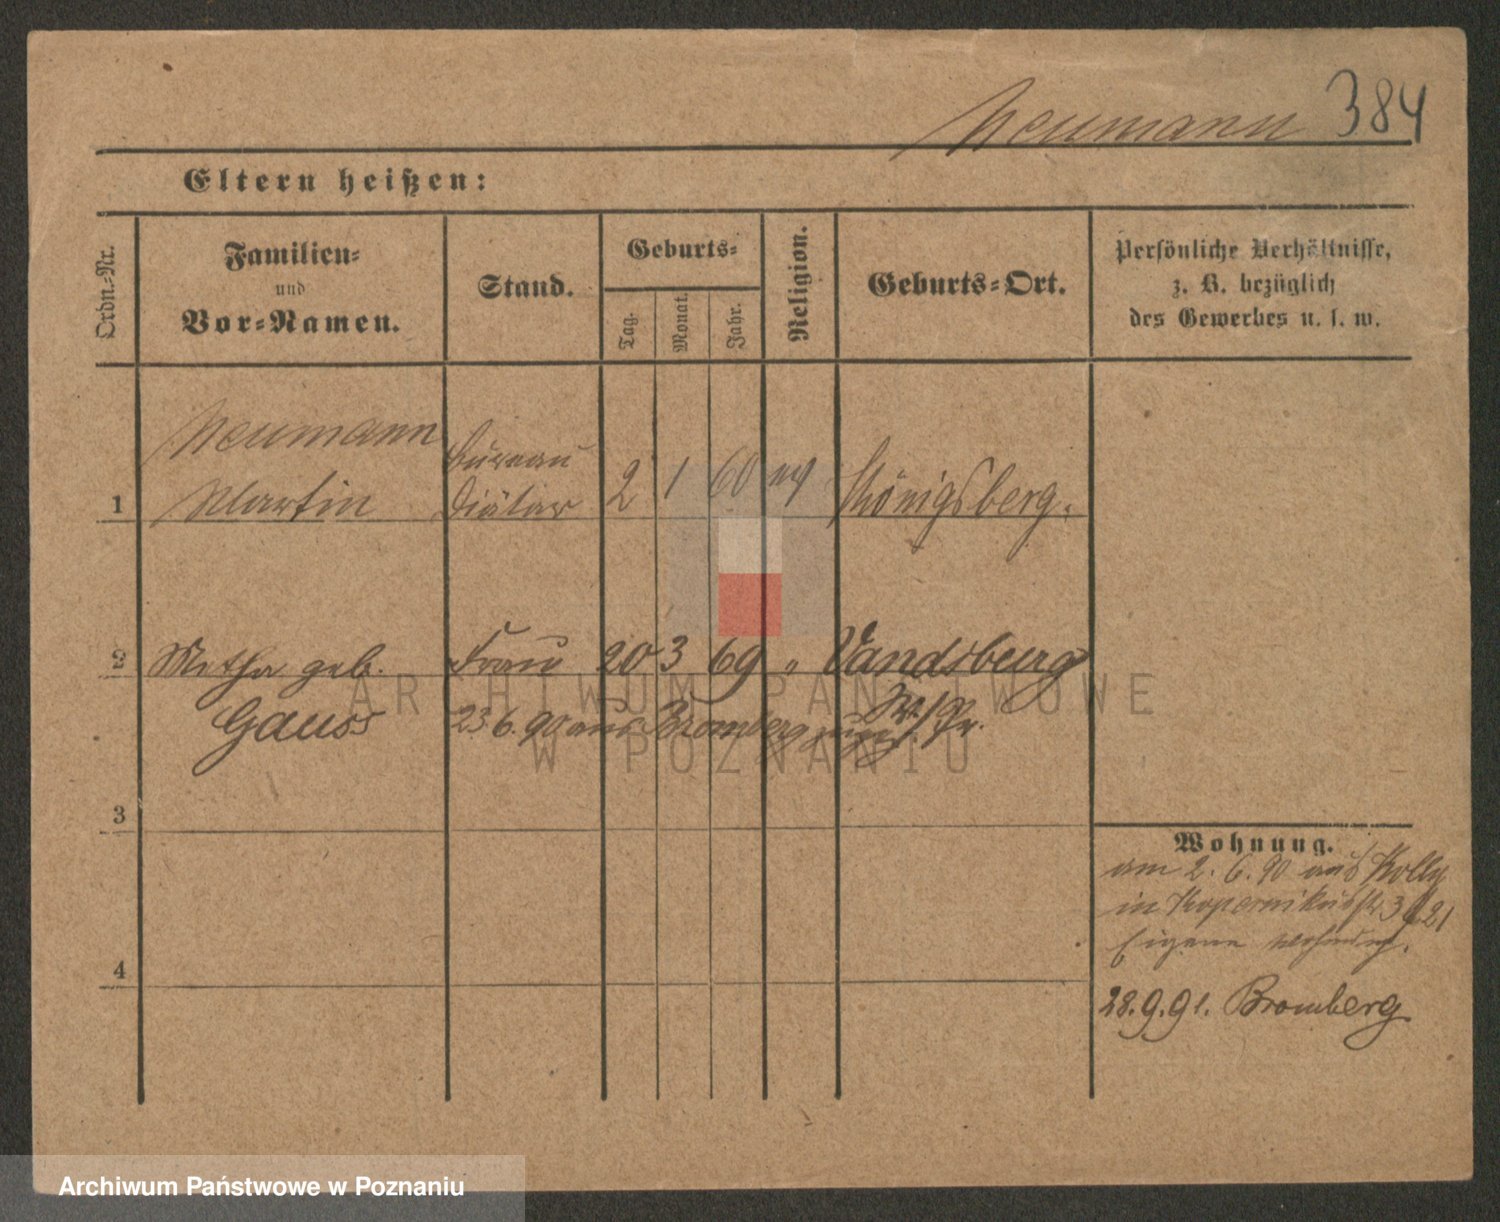 Neumann 384
Eltern heißen:
Ordn.-Nr.
Familien- und Vor-Namen.
Stand.
Geburts-
Tag.
Monat.
Jahr.
Religion.
Geburts-Ort.
Persönliche Verhältnisse,
z. B. bezüglich
des Gewerbes u. s. w.
Neumann Bureau
1 Martin Diätar 2 1 60 ev Königsberg.
2 Metha geb. Frau 20 3 69 " Vandsburg
Gauss W/Pr.
23.6.90 aus Bromberg zugez.
3
4
Wohnung.
am 2. 6. 90 aus
in Kopernikusstr. 3
Eigene Wohnung.
28.9.91. Bromberg
ARCHIWUM PAŃSTWOWE
W POZNANIU
Archiwum Państwowe w Poznaniu